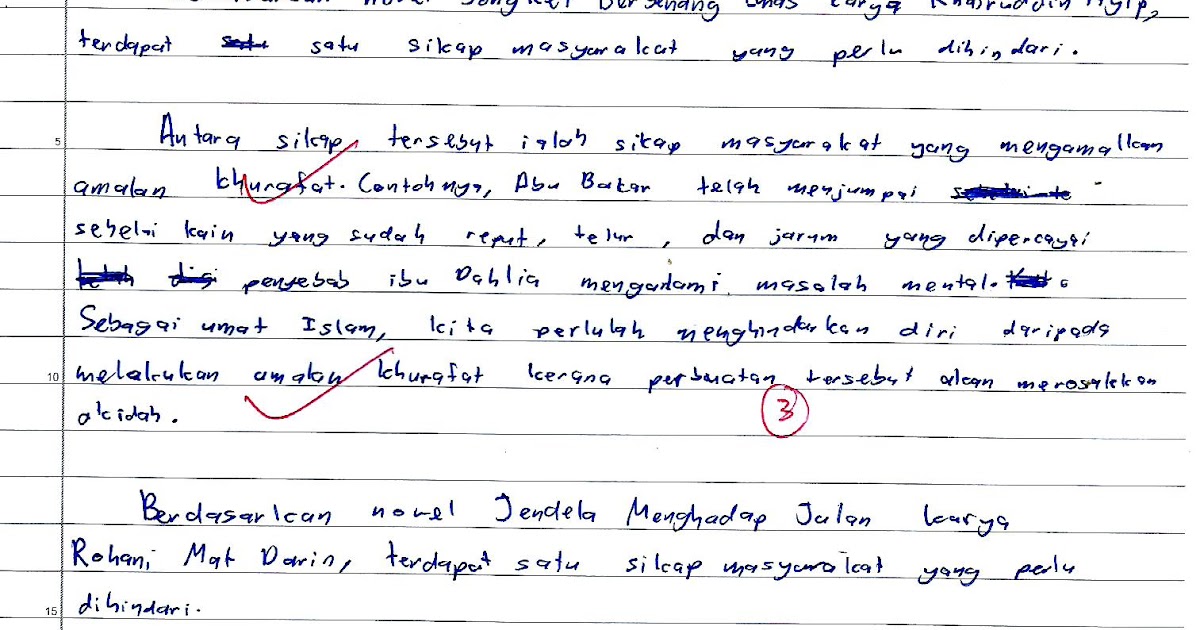 novel Songket Bersenang Emas karya Khairuddin Ayip,
terdapat satu sikap masyarakat yang perlu dihindari.
5 Antara sikap tersebut ialah sikap masyarakat yang mengamalkan
amalan khurafat. Contohnya, Abu Bakar telah menjumpai
sehelai kain yang sudah reput, telur, dan jarum yang dipercayai
penyebab ibu Dahlia mengalami masalah mental.
Sebagai umat Islam, kita perlulah menghindarkan diri daripada
10 melakukan amalan khurafat kerana perbuatan tersebut akan merosakkan
akidah.
3
Berdasarkan novel Jendela Menghadap Jalan karya
Rohani Mat Darin, terdapat satu sikap masyarakat yang perlu
15 dihindari.